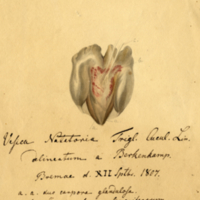 Vesica Natatoria Trigl. Cucul. Lin.
delineatum a Berkenkamp.
Bremae d. XII Sptbr. 1807.
a. a. duo corpora glandulosa